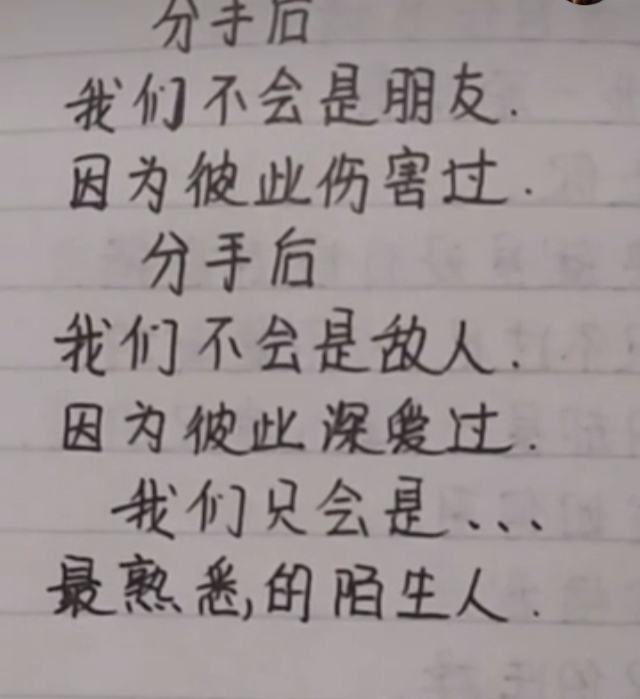 分手后
我们不会是朋友.
因为彼此伤害过.
分手后
我们不会是敌人.
因为彼此深爱过.
我们只会是、、、
最熟悉,的陌生人.